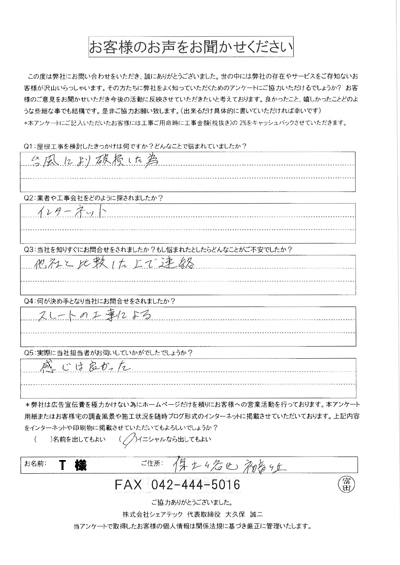 お客様のお声をお聞かせください
この度は弊社にお問い合わせをいただき、誠にありがとうございました。世の中には弊社の存在やサービスをご存知ないお
客様が沢山いらっしゃいます。その方たちに弊社をよく知っていただくためのアンケートにご協力いただけるでしょうか? お
客様のご意見をお聞かせいただき今後の活動に反映させていただきたいと考えております。良かったこと、嬉しかったことどのよ
うな些細な事でも結構です。是非ご協力お願い致します。(出来るだけ具体的に書いていただければ幸いです)
*本アンケートにご記入いただいたお客様には工事ご用命時に工事金額(税抜き)の2%をキャッシュバックさせていただきます。
Q1:屋根工事を検討したきっかけは何ですか?どんなことで悩まれていましたか?
台風により破損した為
Q2:業者や工事会社をどのように探されましたか?
インターネット
Q3:当社を知りすぐにお問合せをされましたか?もし悩まれたとしたらどんなことがご不安でしたか?
他社と比較した上で連絡
Q4:何が決め手となり当社にお問合せをされましたか?
スレートの工事による
Q5:実際に当社担当者がお伺いしていかがでしたでしょうか?
感じは良かった
*弊社は広告宣伝費を極力かけない為にホームページだけを頼りにお客様への営業活動を行っております。本アンケート
用紙またはお客様宅の調査風景や施工状況を随時ブログ形式のインターネットに掲載させていただいております。上記内容
をインターネットや印刷物に掲載させていただいてもよろしいでしょうか?
( )名前を出してもよい ( )イニシャルなら出してもよい
お名前: T 様 ご住所: 保土ヶ谷区
FAX 042-444-5016
富田
ご協力ありがとうございました。
株式会社シェアテック 代表取締役 大久保 誠二
当アンケートで取得したお客様の個人情報は関係法規に基づき厳正に管理いたします。